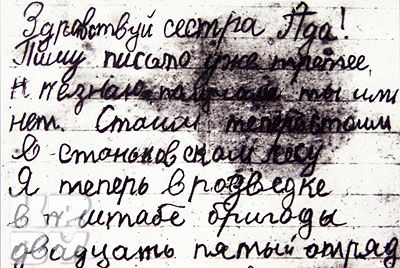 Здравствуй сестра Ада!
Пишу письмо уже третее
и незнаю получала ты или
нет. Стоим теперь стоим
в станьковском лесу
Я теперь в розведке
в п штабе бригоды
двадцать пятый отряд